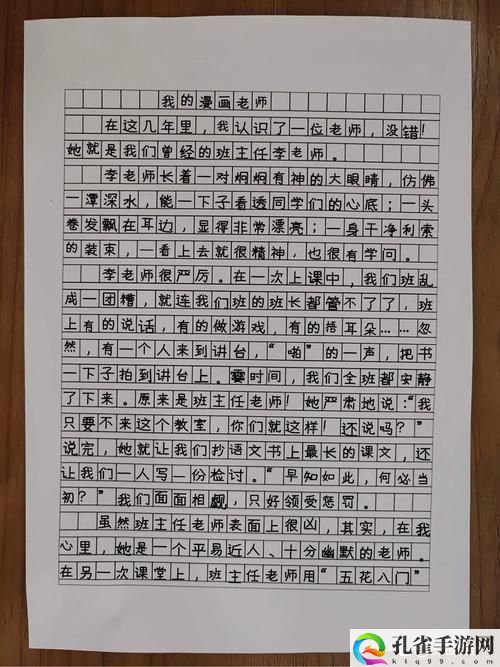 我的漫画老师
在这几年里，我认识了一位老师，没错！
她就是我们曾经的班主任李老师。
李老师长着一对炯炯有神的大眼睛，仿佛
一潭深水，能一下子看透同学们的心底；一头
卷发飘在耳边，显得非常漂亮；一身干净利索
的装束，一看上去就很精神，也很有学问。
李老师很严厉。在一次上课中，我们班乱
成一团糟，就连我们班的班长都管不了了，班
上有的说话，有的做游戏，有的捂耳朵……忽
然，有一个人来到讲台，“啪”的一声，把书
一下子拍到讲台上。霎时间，我们全班都安静
了下来。原来是班主任老师！她严肃地说：“我
只要不来这个教室，你们就这样！还说吗？”
说完，她就让我们抄语文书上最长的课文，还
让我们一人写一份检讨。“早知如此，何必当
初？”我们面面相觑，只好领受惩罚。
虽然班主任老师表面上很凶，其实，在我
心里，她是一个平易近人、十分幽默的老师。
在另一次课堂上，班主任老师用“五花八门”
孔雀手游网
klq99.com